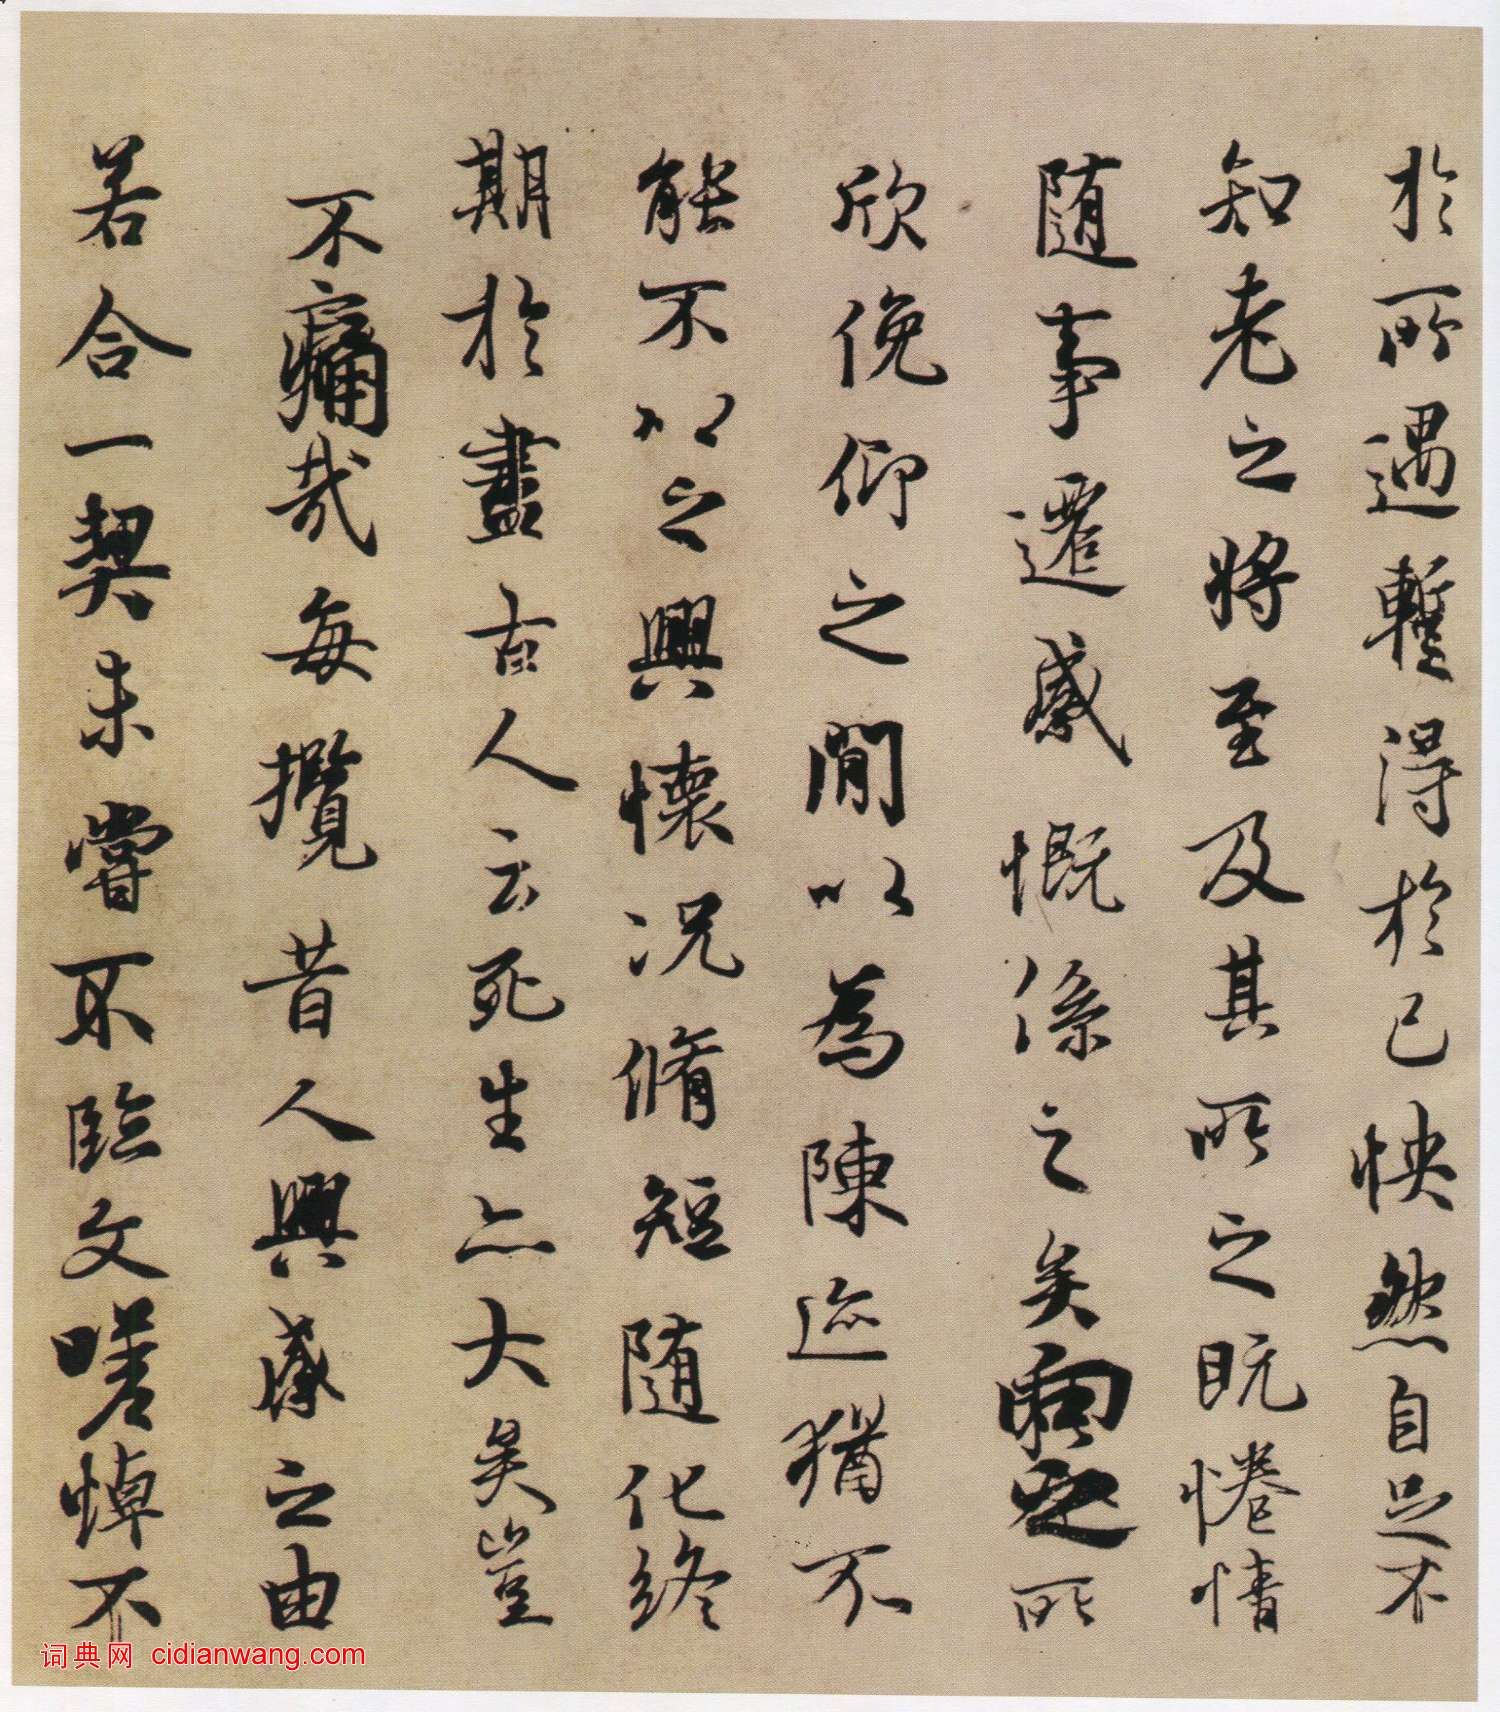 於所遇蹔得於己怏然自足不
知老之將至及其所之既惓情
随事遷感慨係之矣向之所
欣俛仰之閒以為陳迹猶不
能不以之興懷況脩短随化終
期於盡古人云死生亦大矣豈
不痛哉每攬昔人興感之由
若合一契未嘗不臨文嗟悼不
词典网 cidianwang.com